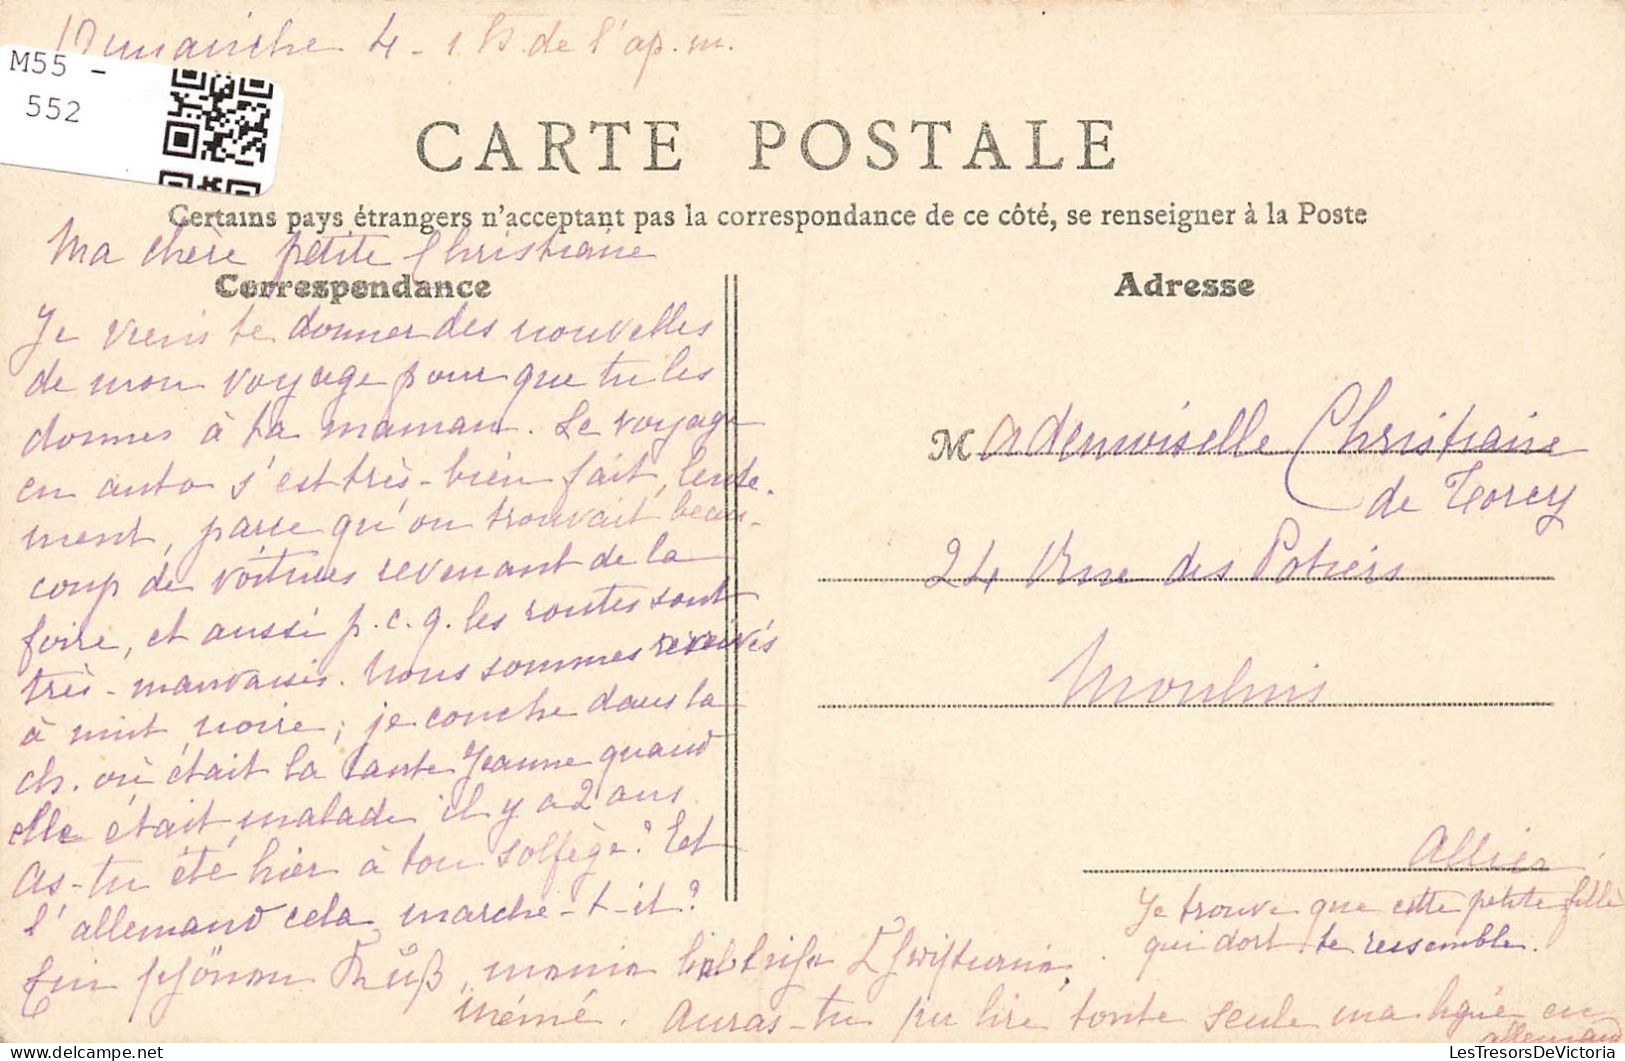 Dimanche 4 - 1 h. de l'ap. m.
M55 -
552
CARTE POSTALE
Certains pays étrangers n'acceptent pas la correspondance de ce côté, se renseigner à la Poste
Ma chère petite Christiane
Correspondance
Je viens te donner des nouvelles
de mon voyage pour que tu les
donnes à ta maman. Le voyage
en auto s'est très-bien fait, lente-
ment, parce qu'on trouvait beau-
coup de voitures revenant de la
foire, et aussi p.c.q. les routes sont
très-mauvaises. Nous sommes
à nuit noire; je couche dans la
ch. où était la tante Jeanne quand
elle était malade il y a 2 ans
As-tu été hier à ton solfège? Et
l'allemand cela marche-t-il?
Ein schönen Kuß, meine liebe Christiane,
Mémé. Auras-tu pu lire toute seule ma ligne en
allemand
Adresse
Mademoiselle Christiane
de Torcy
24 Rue des Potiers
Moulins
Allier
Je trouve que cette petite fille
qui dort te ressemble.
LesTresorsDeVictoria